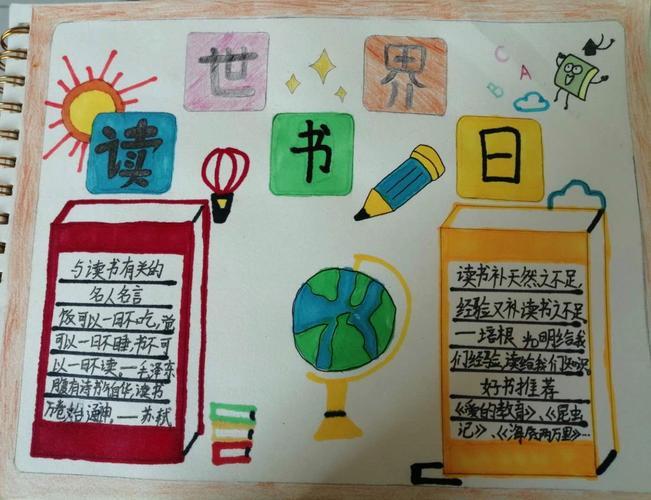 世界
C A
B
读书日
与读书有关的
名人名言
饭可以一日不吃,觉
可以一日不睡,书不可
以一日不读。—毛泽东
腹有诗书气自华,读书
万卷始通神。——苏轼
读书补天然之不足,
经验又补读书之不足
—培根 光明给我
们经验,读给我们知识,
好书推荐
《爱的教育》、《昆虫
记》、《海底两万里》…